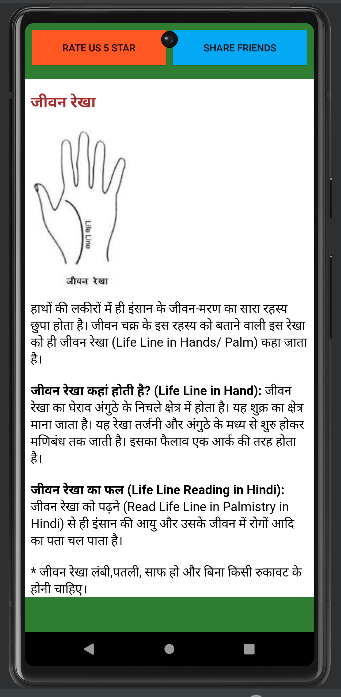 RATE US 5 STAR
SHARE FRIENDS
जीवन रेखा
Life Line
जीवन रेखा
हाथों की लकीरों में ही इंसान के जीवन-मरण का सारा रहस्य
छुपा होता है। जीवन चक्र के इस रहस्य को बताने वाली इस रेखा
को ही जीवन रेखा (Life Line in Hands/ Palm) कहा जाता
है।
जीवन रेखा कहां होती है? (Life Line in Hand): जीवन
रेखा का घेराव अंगुठे के निचले क्षेत्र में होता है। यह शुक्र का क्षेत्र
माना जाता है। यह रेखा तर्जनी और अंगुठे के मध्य से शुरु होकर
मणिबंध तक जाती है। इसका फैलाव एक आर्क की तरह होता
है।
जीवन रेखा का फल (Life Line Reading in Hindi):
जीवन रेखा को पढ़ने (Read Life Line in Palmistry in
Hindi) से ही इंसान की आयु और उसके जीवन में रोगों आदि
का पता चल पाता है।
* जीवन रेखा लंबी,पतली, साफ हो और बिना किसी रुकावट के
होनी चाहिए।